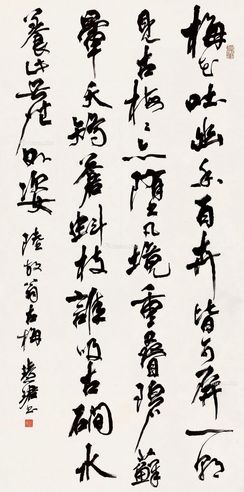 梅花吐幽香百卉皆可屏一朝
见古梅梅亦堕凡境重叠碧藓
晕夭矫苍虯枝谁汲古涧水
养此尘外姿 陆放翁古梅